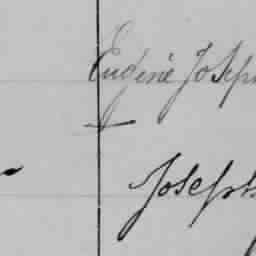 Eugénie Joseph
Joseph